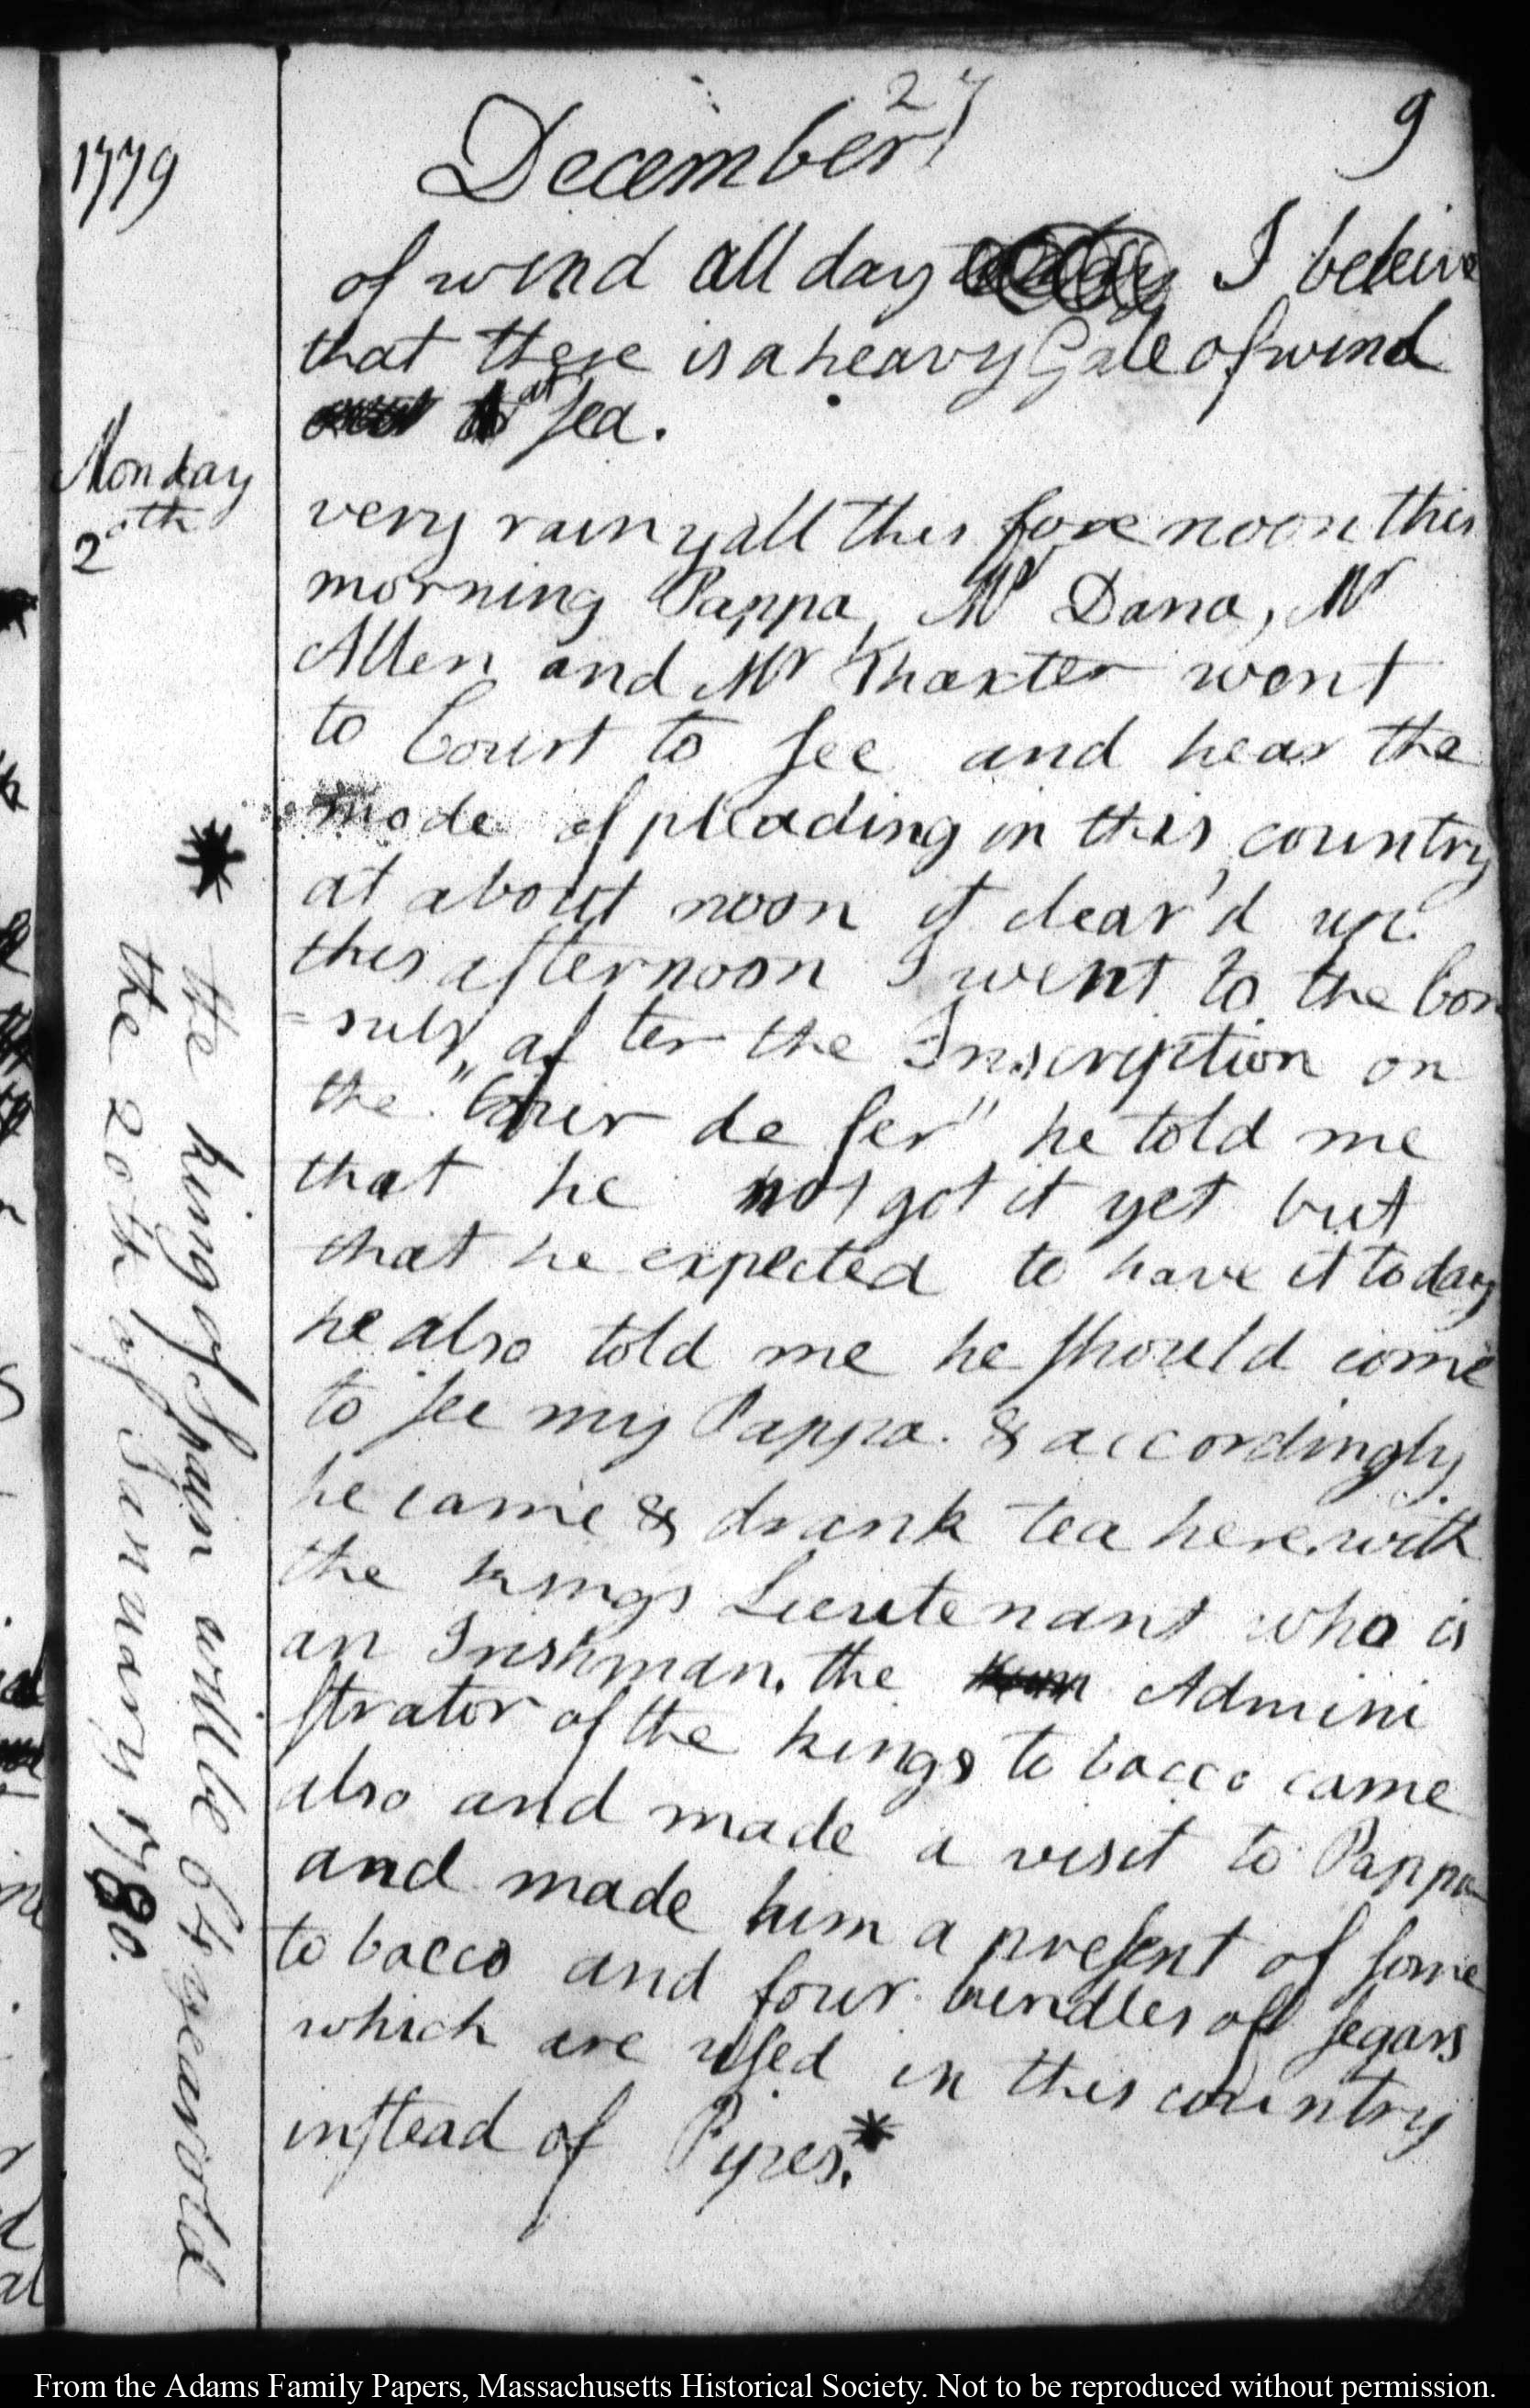 27
9
1779
December
of wind all day I beleive
that there is a heavy Gale of wind
at sea.
Monday
20th
very rainy all this fore noon this
morning Pappa, Mr Dana, Mr
Allen and Mr Thaxter went
to Court to see and hear the
mode of pleading in this country
at about noon it clear'd up.
this afternoon I went to the Con
=suls, after the Inscription on
the "Tour de fer" he told me
that he not got it yet but
that he expected to have it to day
he also told me he should come
to see my Pappa. & accordingly
he came & drank tea here. with
the kings Lieutenant who is
an Irishman. the Admini
strator of the kings tobacco came
also and made a visit to Pappa
and made him a present of some
tobacco and four bundles of segars
which are used in this country
instead of Pipes.*
* the king of Spain will be 64 years old
the 20th of January 1780.
From the Adams Family Papers, Massachusetts Historical Society. Not to be reproduced without permission.